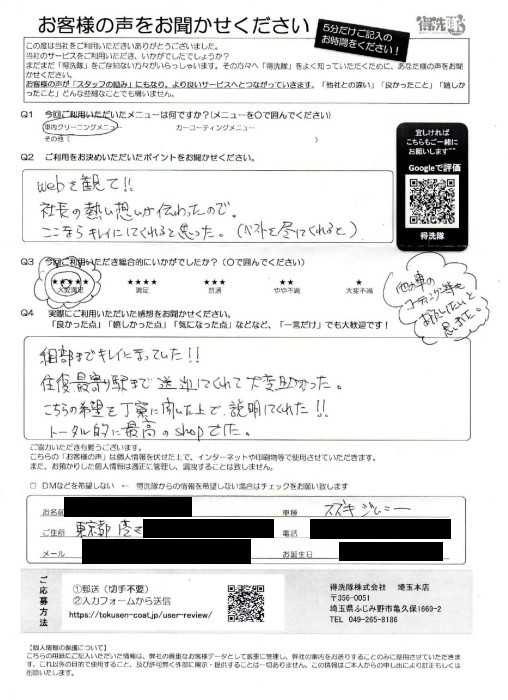 お客様の声をお聞かせください
5分だけご記入の
お時間をください!
得洗隊
この度は当社をご利用いただきありがとうございました。
当社のサービスをご利用いただき、いかがでしたでしょうか?
まだまだ「得洗隊」をご存知ない方がいらっしゃいます。その方々へ「得洗隊」をよく知っていただくために、あなた様の声をお聞かせください。
お客様の声が「スタッフの励み」にもなり、より良いサービスへとつながっていきます。「他社との違い」「良かったこと」「嬉しかったこと」どんな些細なことでも構いません。
Q1 今回ご利用いただいたメニューは何ですか?(メニューを〇で囲んでください)
車内クリーニングメニュー カーコーティングメニュー
その他(            )
Q2 ご利用をお決めいただいたポイントをお聞かせください。
webを観て!!
社長の熱い想いが伝わったので。
ここならキレイにしてくれると思った。(ベストを尽してくれると)
宜しければ
こちらもご一緒に
お願いします^^
Googleで評価
得洗隊
Q3 今回ご利用いただき総合的にいかがでしたか?(〇で囲んでください)
★★★★★ ★★★★ ★★★ ★★ ★
大変満足 満足 普通 やや不満 大変不満
他の車の
コーティング等も
お願いしたいと
思いました。
Q4 実際にご利用いただいた感想をお聞かせください。
「良かった点」「嬉しかった点」「気になった点」などなど、「一言だけ」でも大歓迎です!
細部までキレイになっていた!!
往復最寄り駅まで送迎してくれて大変助かった。
こちらの希望を丁寧に聞いた上で、説明してくれた!!
トータル的に最高のshopでした。
ご協力いただき有難うございます。
こちらの「お客様の声」は個人情報を伏せた上で、インターネットや印刷物等で使用させていただきます。
また、お預かりした個人情報は適正に管理し、漏洩することは致しません。
□ DMなどを希望しない ← 得洗隊からの情報を希望しない場合はチェックをお願い致します
お名前 車種 スズキ ジムニー
ご住所 東京都 電話
メール お誕生日
ご応募方法
①郵送(切手不要)
②入力フォームから送信
https://tokusen-coat.jp/user-review/
得洗隊株式会社 埼玉本店
〒356-0051
埼玉県ふじみ野市亀久保1669-2
TEL 049-265-8186
【個人情報の保護について】
こちらの用紙にご記入いただいた情報は、弊社の貴重なお客様データとして厳重に管理し、弊社の案内をお送りすることのみに使用させていただきます。これ以外の目的で使用すること、及び許可無く外部に開示・提供することは一切ありません。この情報はご本人からの申し出により訂正もしくは削除いたします。